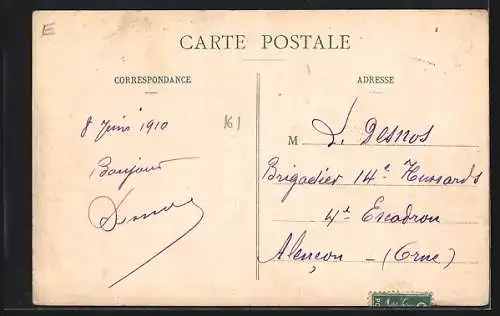 E
CARTE POSTALE
CORRESPONDANCE
ADRESSE
8 Juin 1910
161
Bonjour
M L. Desnos
Brigadier 14e Hussards
4e Escadron
Alençon - (Orne)